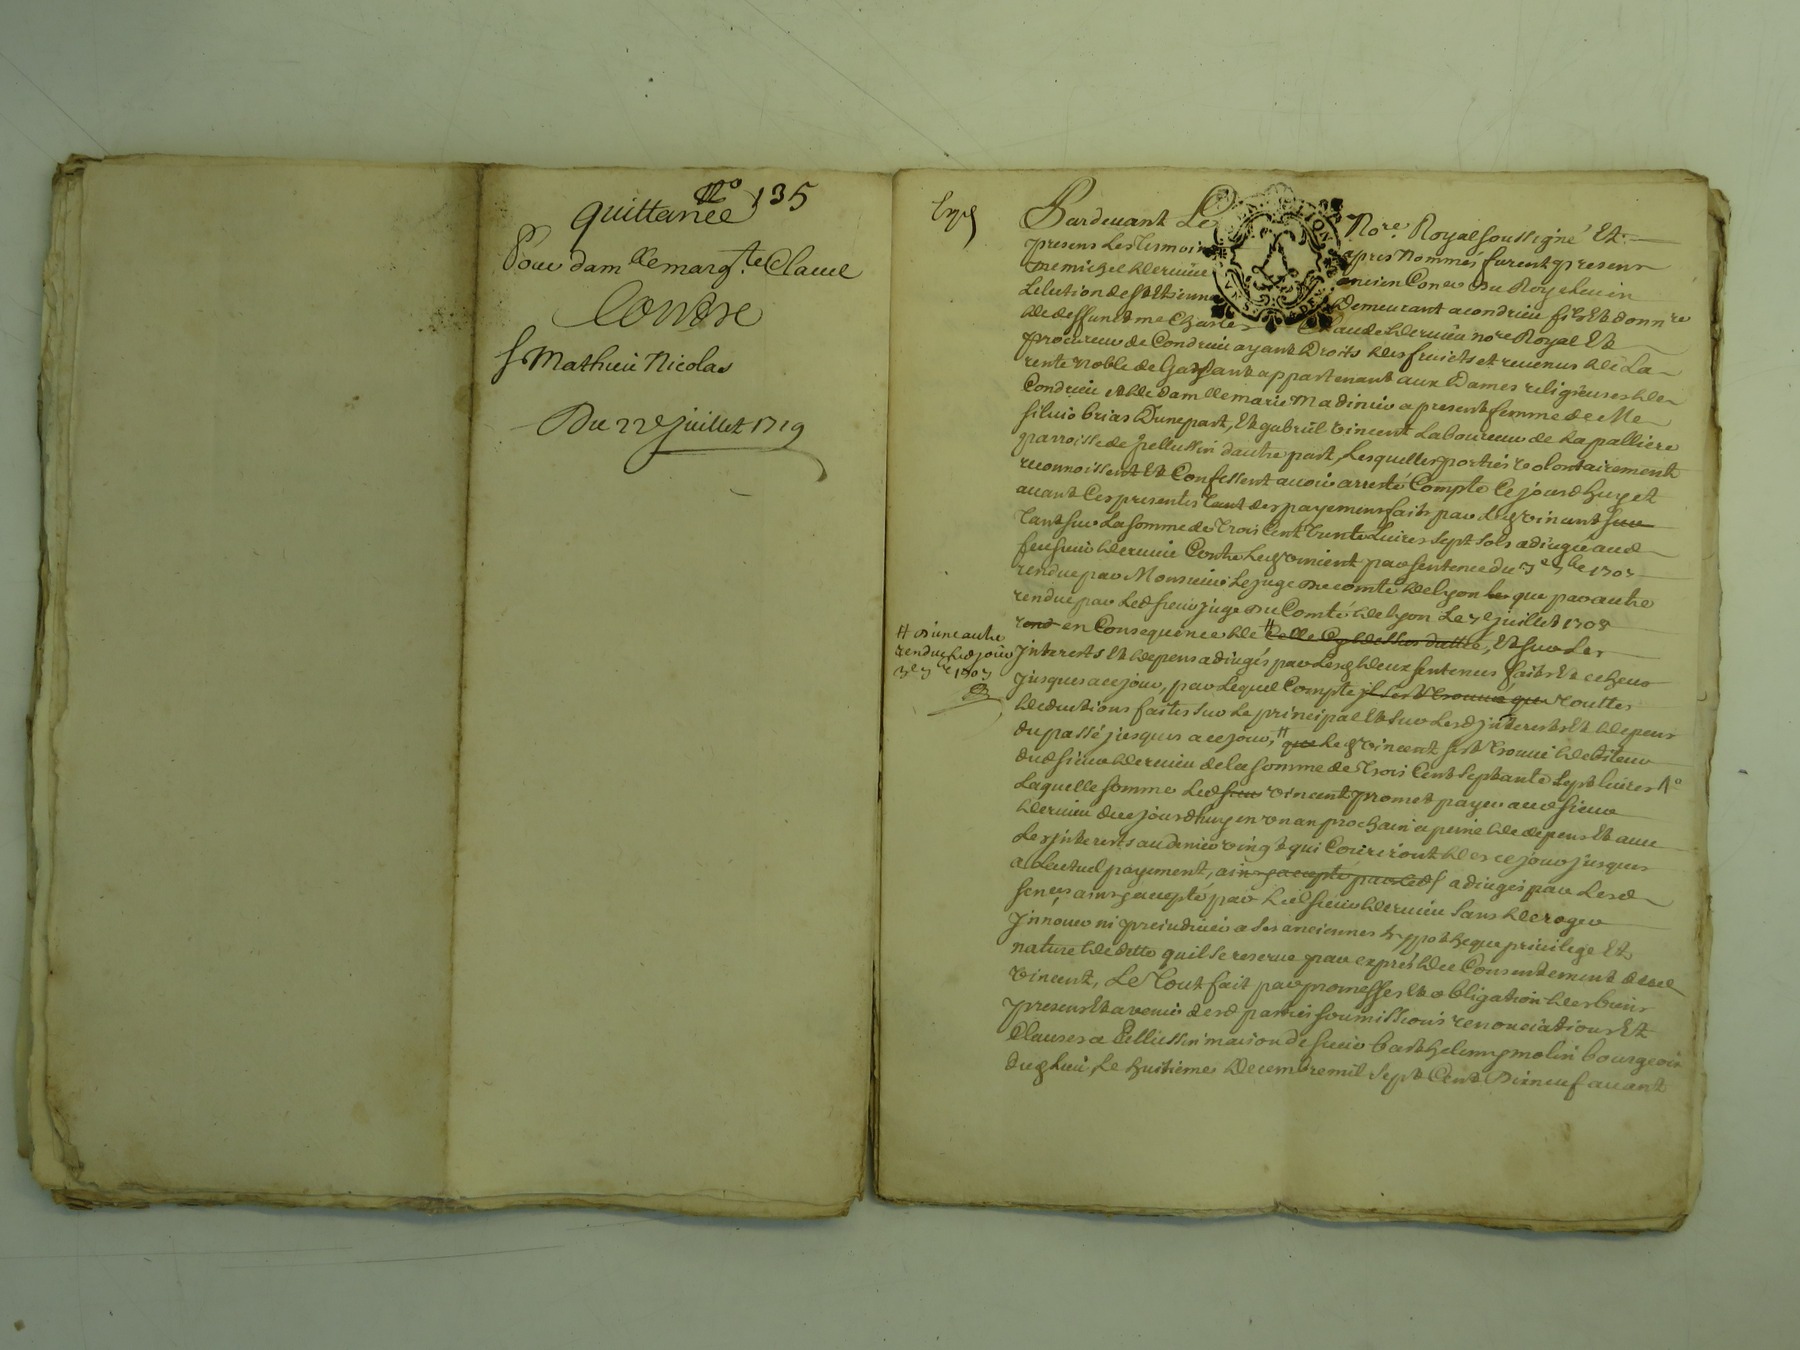 N° 135
quittance
Pour damlle margte Clauel
Contre
sr Mathieu Nicolas
Du 22e juillet 1719
Expé
Pardeuant Le Nore Royal soussigné Et
presens Les Temoins apres Nommés furent presens
me michel deruieu ancien Coner du Roy esleu en
Lelection de st Etienne Demeurant a condrieu fils Et donnre
de deffunct me Charles Claude deruieu nore Royal Et
procureur de Condrieu ayant Droits des fruicts et reuenus de La
rente noble de appartenant aux Dames religieuses de
Condrieu et de damlle marie madinier a present femme de Me
brias Dune part, Et gabriel vincent Laboureur de La palliere
parroisse de pellussin dautre part, Lesquelles parties volontairement
reconnoissent Et Confessent auoir arresté Compte Ce jourdhuy et
auant Ces presentes tant des payemens faits par Led vincent sur
tant sur La somme de Trois Cent Trente Liures sept sols adiugée aud
feu sieur deruieu Contre Led vincent par sentence du 3e 7bre 1707
rendue par Monsieur Le juge du comté de lyon que par autre
rendue par Led sieur juge du Comté de lyon Le 7e juillet 1708
rend en Consequence de # Celle Cy dessus dattée, Et sur Les
# d'une autre
rendue Led jour
3e 7bre 1707
jnterests Et depens adiugés par Lesd deux sentences faits Et echeus
jusques a ce jour, par Lequel Compte jl s'est trouué que touttes
deductions faites sur Le principal Et sur Lesd jnterests Et depens
du passé jusques a ce jour, # que Led vincent s'est trouué debiteur
dud sieur deruieu de la somme de Trois Cent septante sept liures
Laquelle somme Led sieur vincent promet payer aud sieur
deruieu dece jourdhuy en vn an prochain a peine de depens Et auec
Les jnterests au denier vingt qui Coureront des ce jour jusques
a Lactuel payement, ainsy accepté par Led s adiugés par Lesd
senes ainsy accepté par Led sieur deruieu sans deroger
jnnouer ni preiudicier a ses anciennes hyppotheque priuilege Et
nature de dette quil se reserue par exprés du Consentement dud
vincent, Le Tout fait par promesses Et obligation des biens
presens Et auenir desd parties soumissions renonciations Et
Clauses a Pellussin maison de sieur barthelemy molin bourgeois
dud Lieu, Le huitieme Decembre mil sept Cent Dixneuf auant